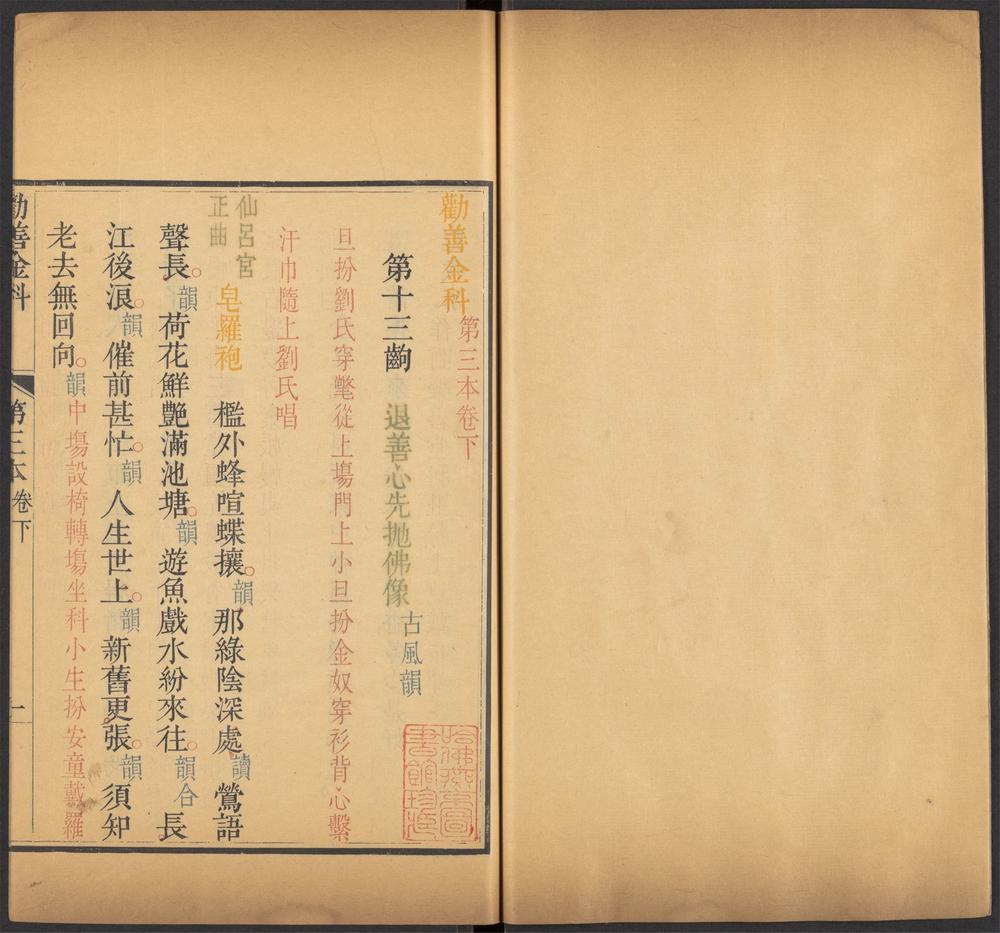 勸善金科第三本卷下
第十三齣 退善心先抛佛像 古風韻
旦扮劉氏穿氅從上場門上小旦扮金奴穿衫背心繫
汗巾隨上劉氏唱
仙呂宮
正曲
皂羅袍 檻外蜂喧蝶攘。韻那綠陰深處讀鶯語
聲長。韻荷花鮮艷滿池塘。韻遊魚戲水紛來往。韻合長
江後浪。韻催前甚忙。韻人生世上。韻新舊更張。韻須知
老去無回向。韻中場設椅轉場坐科小生扮安童戴羅
勸善金科 第三本卷下 一
哈佛燕京圖
書館珍藏印